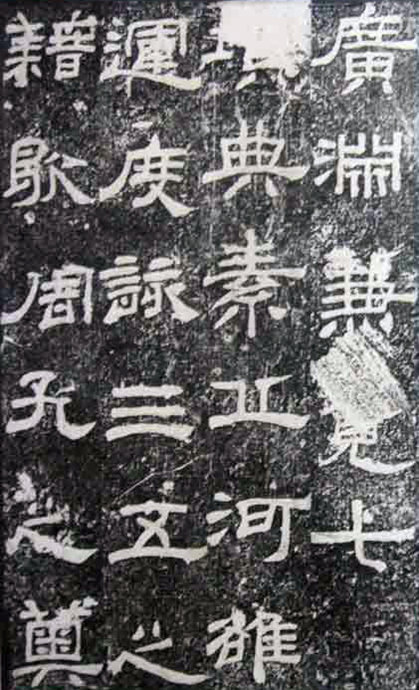 廣淵兼覽七
典素丘河雒
運度詠三五之
籍歌周孔之奧